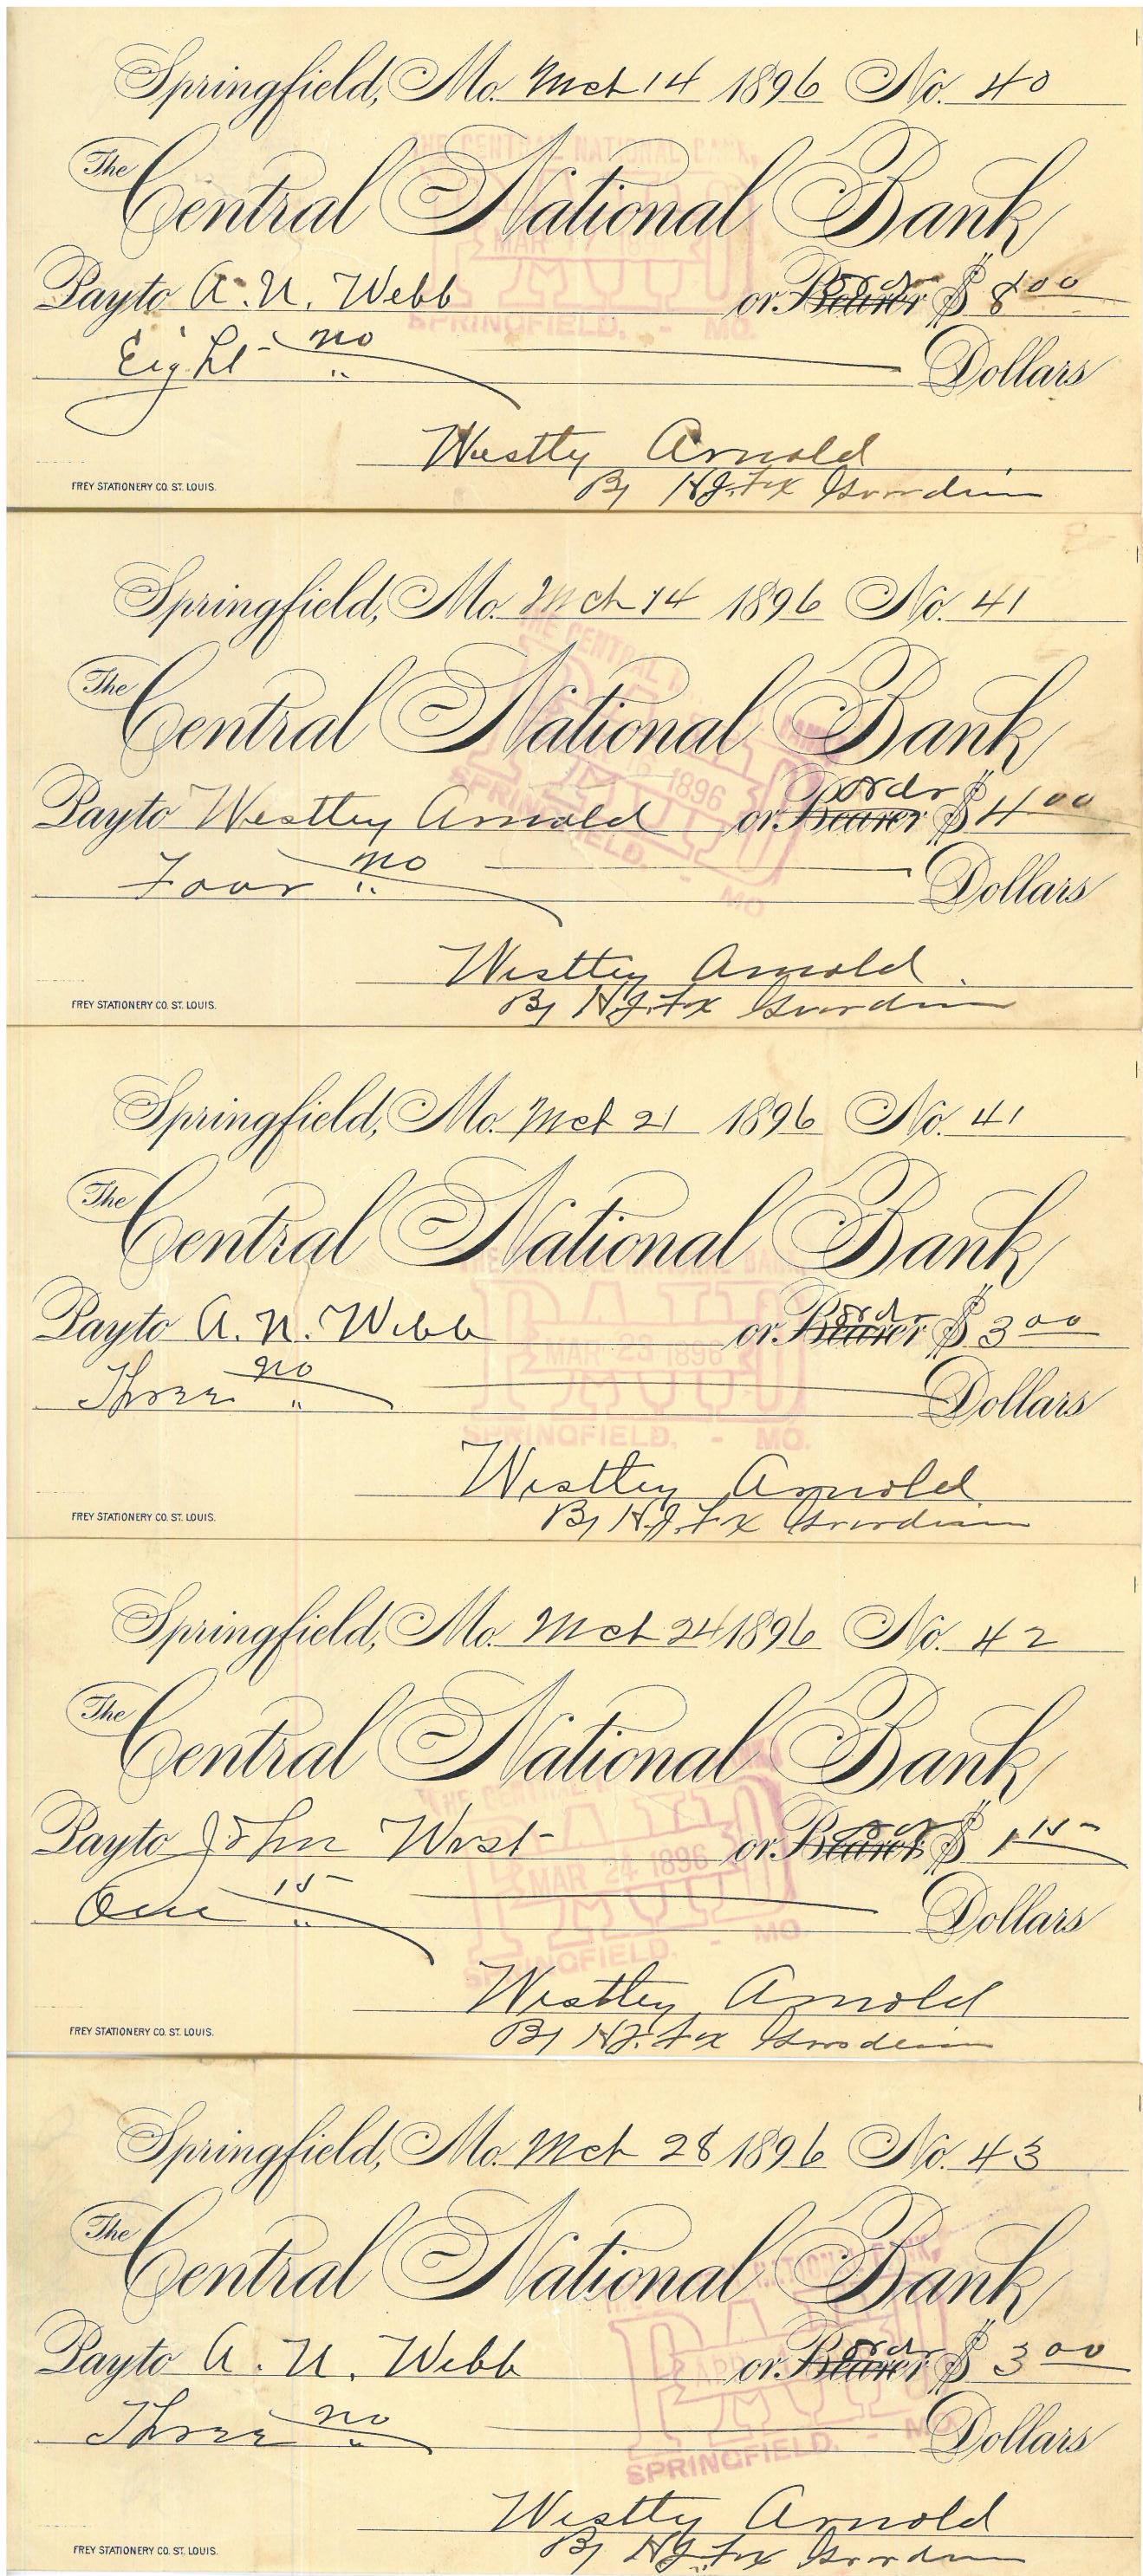 Springfield, Mo. Mch 14 1896 No. 40
THE CENTRAL NATIONAL BANK,
The Central National Bank
PAID
MAR
Pay to A. N. Webb or Bearer order $ 8 00
SPRINGFIELD, - MO.
Eight no Dollars
Westley Arnold
By H.J. Fox Guardian
FREY STATIONERY CO. ST. LOUIS.
Springfield, Mo. Mch 14 1896 No. 41
THE CENTRAL
The Central National Bank
PAID
1896
Pay to Westley Arnold or Bearer order $ 4 00
SPRINGFIELD, - MO
Four no Dollars
Westley Arnold
By H.J. Fox Guardian
FREY STATIONERY CO. ST. LOUIS.
Springfield, Mo. Mch 21 1896 No. 41
The Central National Bank
PAID
Pay to A. N. Webb or Bearer order $ 3 00
MAR 23 1896
Three no Dollars
SPRINGFIELD, - MO.
Westley Arnold
By H.J. Fox Guardian
FREY STATIONERY CO. ST. LOUIS.
Springfield, Mo. Mch 24 1896 No. 42
The Central National Bank
THE CENTRAL
PAID
Pay to John West or Bearer order $ 1 15
MAR 24 1896
One 15 Dollars
SPRINGFIELD, - MO
Westley Arnold
By H.J. Fox Guardian
FREY STATIONERY CO. ST. LOUIS.
Springfield, Mo. Mch 28 1896 No. 43
The Central National Bank
NATIONAL BANK,
PAID
Pay to A. N. Webb or Bearer order $ 3 00
Three no Dollars
SPRINGFIELD, - MO.
Westley Arnold
By H.J. Fox Guardian
FREY STATIONERY CO. ST. LOUIS.